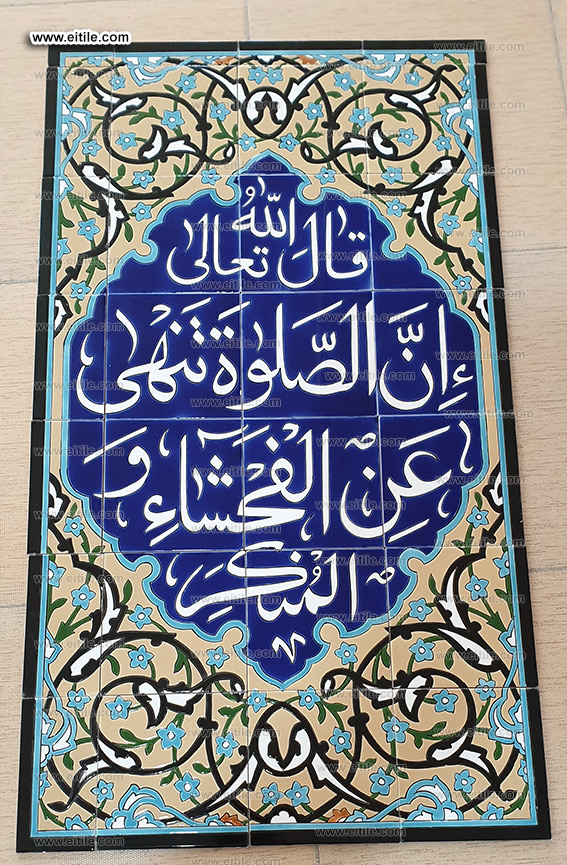 www.eitile.com
قال الله تعالى
إنَّ الصَّلوةَ تَنهى
عَنِ الفَحشاءِ و
المُنكَرِ